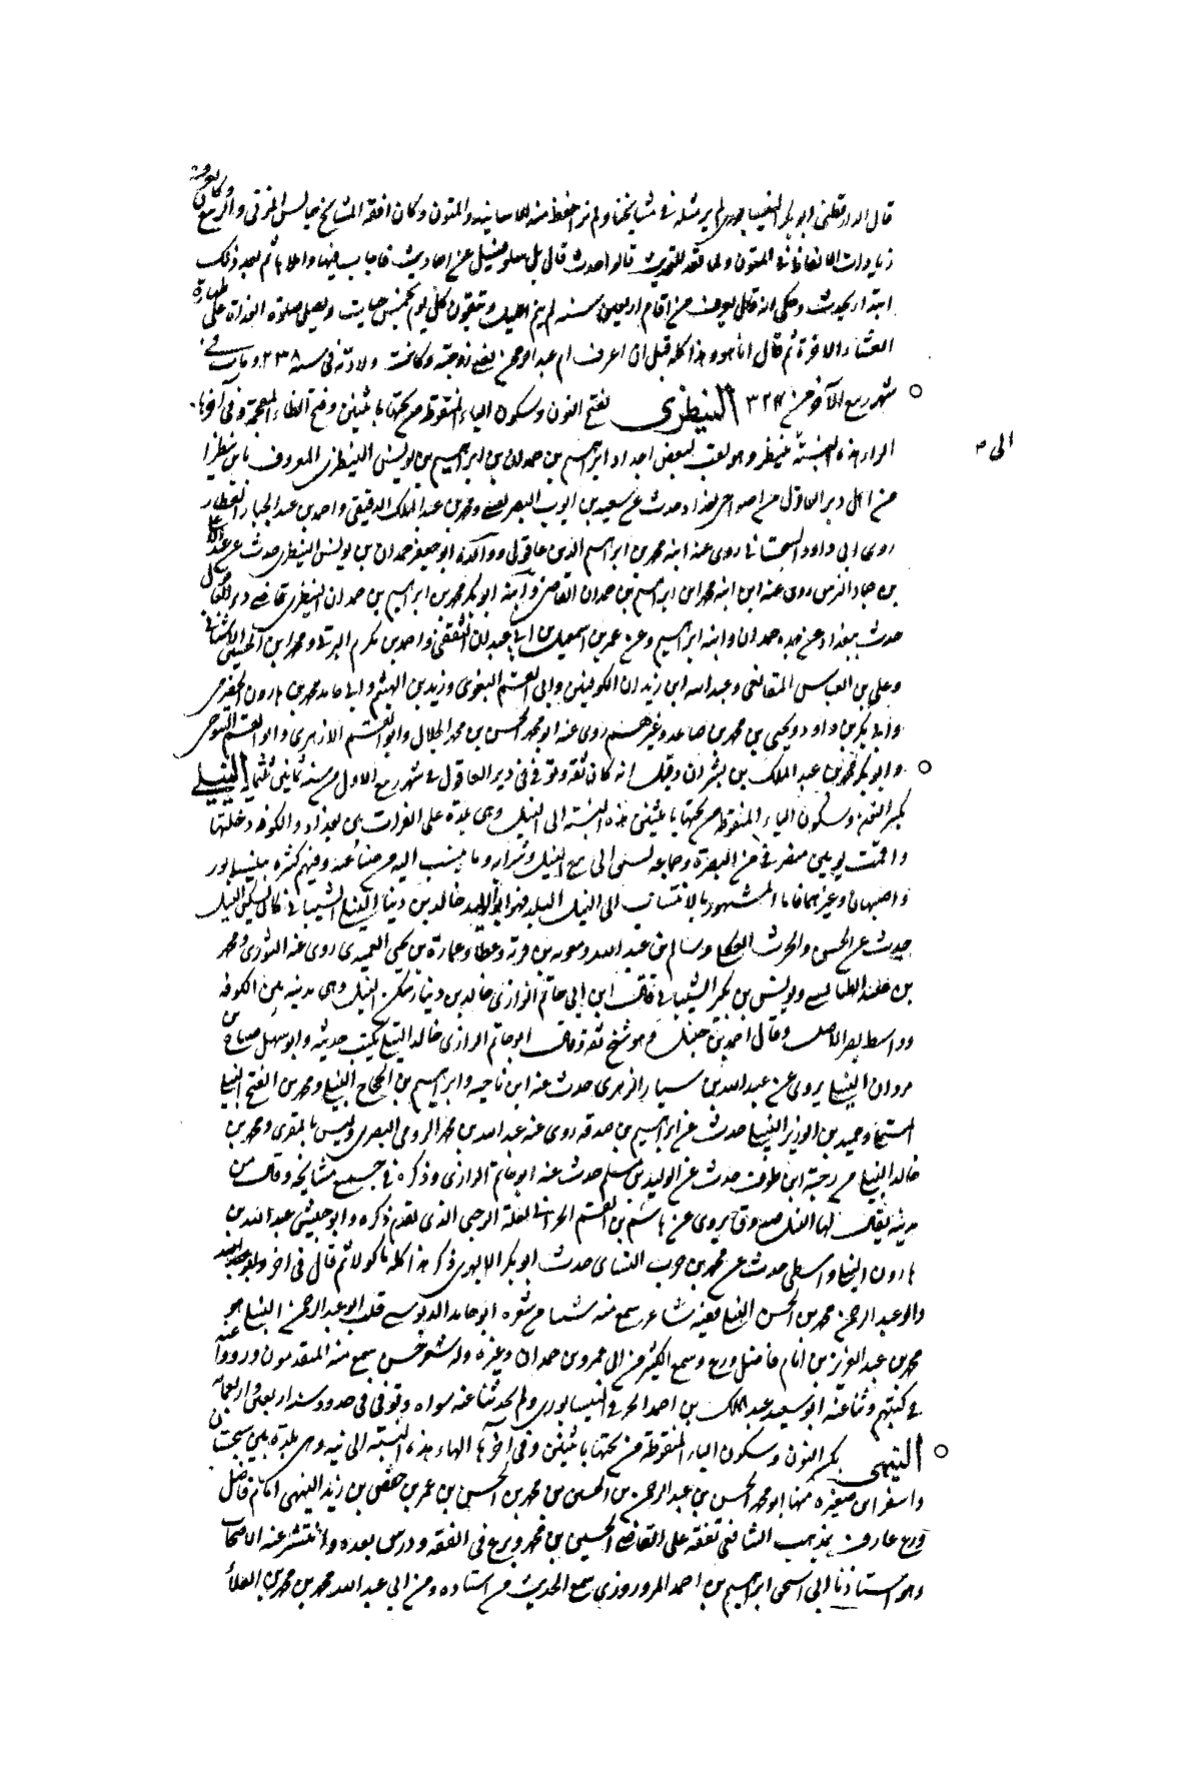 قال الدارقطنى ابو بكر النيسابورى لم ير مثله فى مشايخنا ولم نر احفظ منه للاسانيد والمتون وكان افقه المشايخ جالس المزنى والربيع وكان يعرف
زيادات الالفاظ فى المتون ولما قعد للتحديث قالوا حدث قال بل سلوا فسئل عن احاديث فاجاب فيها واملاها ثم بعد ذلك
ابتدا يحدث وحكى انه قال يعرف من اقام اربعين سنه لم ينم الليل ويتقوت كل يوم بخمس حبات ويصلى صلوة الغداة على طهارة
العشاء الاخرة ثم قال انا هو وهذا كله قبل ان اعرف ام عبد الرحمن يعنى زوجته وكانت ولادته فى سنه ٢٣٨ ومات فى
شهر ربيع الآخر من ٣٢٤ النيطرى بفتح النون وسكون الياء المنقوطه من تحتها باثنين وفتح الظاء المعجمة وفى آخرها
الراء هذه النسبة الى نيظر وهو لقب لبعض اجداد ابراهيم بن حمدان بن ابراهيم بن يونس النيطرى المعروف بابن نيظرا
من اهل دير العاقول من احدى بغداد حدث عن سعيد بن ايوب البصرى ومحمد بن عبد الملك الدقيقى واحمد بن عبد الجبار العطار
روى ابى داود السجستانى روى عنه ابنه محمد بن ابراهيم الدير عاقولى ووالده ابو جعفر حمدان بن يونس النيطرى حدث عن عبد الاعلى
بن حماد النرسى روى عنه ابن ابنه محمد ابن ابراهيم بن حمدان القاضى وابنه ابو بكر محمد بن ابراهيم بن حمدان النيطرى قاضى دير العاقول
حدث ببغداد عن جده حمدان وابنه ابراهيم وعن عمر بن اسمعيل بن ابى غيلان الثقفى واحمد بن مكرم البرتى ومحمد ابن الحسين الاشنانى
وعلى بن العباس المقانعى وعبد الله ابن زيدان الكوفيين وابى القسم البغوى وزيد بن الهيثم وابى حامد محمد بن هارون الحضرمى
وابى بكر بن داود ويحيى بن محمد بن صاعد وغيرهم روى عنه ابو محمد الحسن بن محمد الخلال وابو القسم الازهرى وابو القسم التنوخى
وابو بكر محمد بن عبد الملك بن بشران وقال انه كان ثقة وتوفى فى دير العاقول فى شهر ربيع الاول من سنه ثمانين ثلثمايه النيلى
بكسر النون وسكون الياء المنقوطه من تحتها باثنين هذه النسبة الى النيل وهى بلدة على الفرات بين بغداد والكوفه دخلتها
واقمت يومين منصرفى من البصرة وجماعه نسبوا الى بيع النيل وشرايه وما ينسب اليه وفيهم كثره بنيسابور
واصبهان وغيرهما فاما المشهور بالانتساب الى النيل البلد فهو ابو الوليد خالد بن دينار النيلى الشيبانى كان يسكن النيل
حدث عن الحسن والحرث العكلى وسالم بن عبد الله ومعويه بن قرة وعطاء وعمارة بن روى عنه الثورى ومحمد
بن الطيالسى ويونس بن بكير الشيبانى قال ابن ابى حاتم الرازى خالد بن دينار سكن النيل وهى مدينه بين الكوفه
وواسط بصرى الاصل وقال احمد بن حنبل وهو شيخ ثقة وقال ابو حاتم الرازى خالد النيلى يكتب حديثه وابو سهل صباح بن
مروان النيلى يروى عن عبد الله بن سيار الزهرى حدث عنه ابن ناجيه وابراهيم بن الحجاج النيلى ومحمد بن الفتح النيلى
وحميد بن الوزير النيلى حدث عن ابراهيم بن صدقه روى عنه عبد الله بن محمد الرومى البصرى وليس بالمقرى ومحمد بن
خالد النيلى من رحبة ابن طوق حدث عن الوليد بن مسلم حدث عنه ابو حاتم الرازى وذكره فى جميع مشايخه وقال من
مدينه يقال لها النيل صدوق يروى عن هاشم بن القسم الحرانى الرحبى الذى تقدم ذكره وابو عبد الله بن
هارون النيلى واسطى حدث عن محمد بن حرب النسائى حدث ابو بكر الابهرى ذكر هذا كله ماكولا ثم قال فى اخر
وابو عبد الرحمن محمد بن الحسن النيلى فقيه شاعر سمع منه شيا من شعره ابو حامد قلت ابو عبد الرحمن النيلى هو
محمد بن عبد العزيز بن امام فاضل ورع وسمع الكثير من ابى عمرو بن حمدان وغيره وله شعر حسن سمع منه المتقدمون ورووا عنه
فى كتبهم وثنا عنه ابو سعيد عبد الملك بن احمد النيسابورى ولم يحدثنا عنه سواه وتوفى فى حدود سنه اربعين واربعمائه
النيهى بكسر النون وسكون الياء المنقوطة من تحتها باثنين وفى آخرها الهاء هذه النسبة الى نيه وهى بلدة بين سجستان
واسفراين صغيره منها ابو محمد الحسن بن عبد الرحمن بن الحسين بن محمد بن الحسين بن عمر بن حفص بن زيد النيهى امام فاضل
ورع عارف بمذهب الشافعى تفقه على القاضى الحسين بن محمد وبرع فى الفقه ودرس بعده وانتشر عنه الاصحاب
وهو استاذنا ابى اسحق ابراهيم بن احمد المروروذى سمع الحديث من استاده ومن ابى عبد الله محمد بن محمد بن العلاء